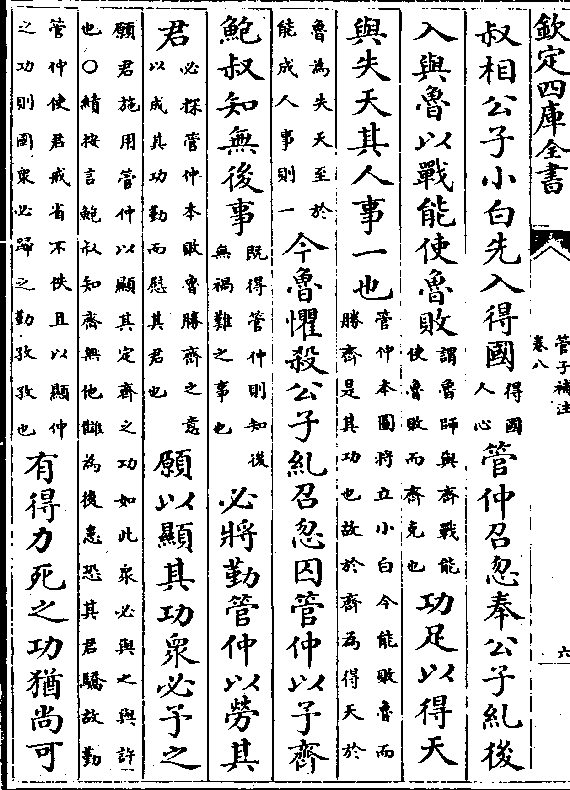 欽定四庫全書
管子補注
卷八
六
叔相公子小白先入得國得國人心管仲召忽奉公子糺後
入與魯以戰能使魯敗謂魯師與齊戰能使魯敗而齊克也功足以得天
與失天其人事一也管仲本圖將立小白今能敗魯而勝齊是其功也故於齊為得天於
魯為失天至於能成人事則一今魯懼殺公子糺召忽囚管仲以予齊
鮑叔知無後事既得管仲則知後無禍難之事也必將勤管仲以勞其
君必探管仲本敗魯勝齊之意以成其功勤而慰其君也願以顯其功衆必予之
願君施用管仲以顯其定齊之功如此衆必與之與許也○績按言鮑叔知齊無他讎為後患恐其君驕故勤
管仲使君戒省不佚且以顯仲之功則國衆必歸之勤孜孜也有得力死之功猶尚可